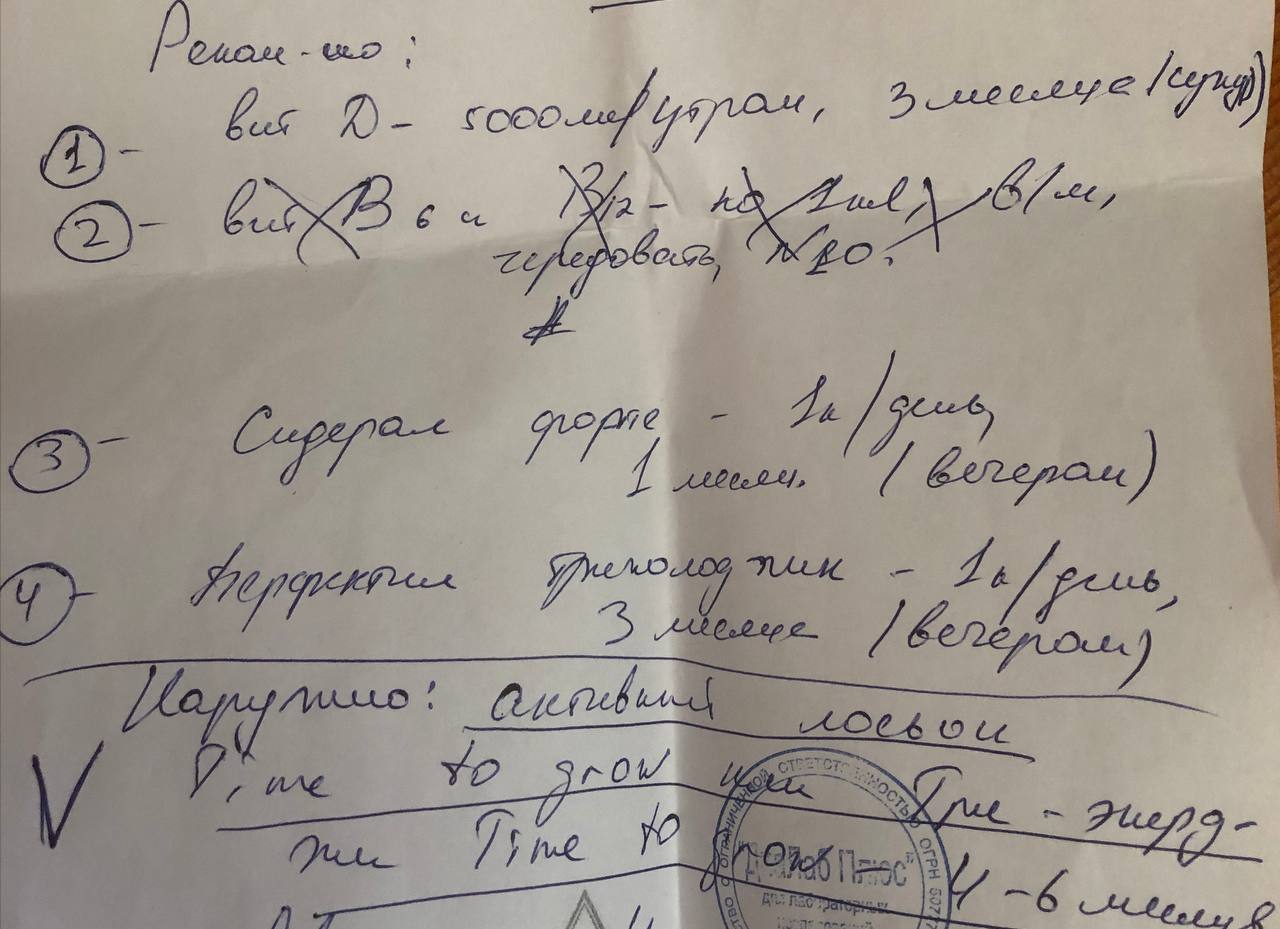 Реком-но:
① - вит D - 5000ме/утром, 3 месяца
② - вит В6 и В12 - по 1мл, в/м,
чередовать, N10.
③ - Сидерал форте - 1к/день,
1 месяц. (вечером)
④ - Перфектил трихолоджик - 1к/день,
3 месяца (вечером)
Наружно: активный лосьон
V Time to grow или Три-энерд-
жи Time to grow - 4-6 месяцев
ОГРАНИЧЕННОЙ ОТВЕТСТВЕННОСТЬЮ ОГРН 5077
Лаб Плюс"
для лабораторных